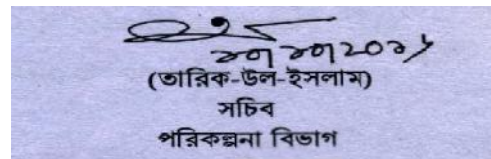 (তারিক-উল-ইসলাম)
সচিব
পরিকল্পনা বিভাগ